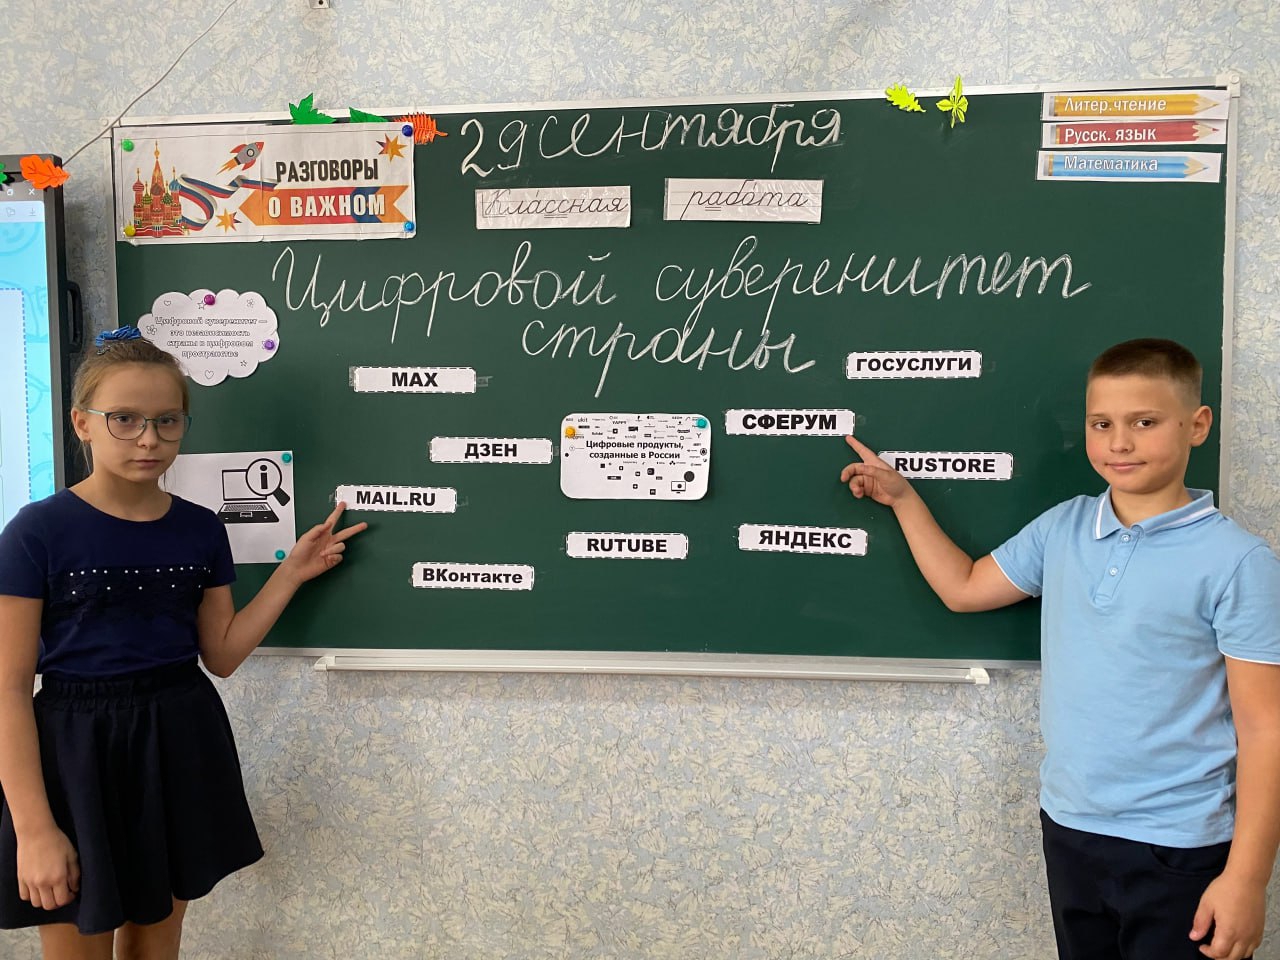 29 сентября
РАЗГОВОРЫ
О ВАЖНОМ
Классная работа
Литер.чтение
Русск. язык
Математика
Цифровой суверенитет
страны
Цифровой суверенитет —
это независимость
страны в цифровом
пространстве
MAX
ГОСУСЛУГИ
ДЗЕН
СФЕРУМ
Цифровые продукты,
созданные в России
RUSTORE
MAIL.RU
RUTUBE
ЯНДЕКС
ВКонтакте